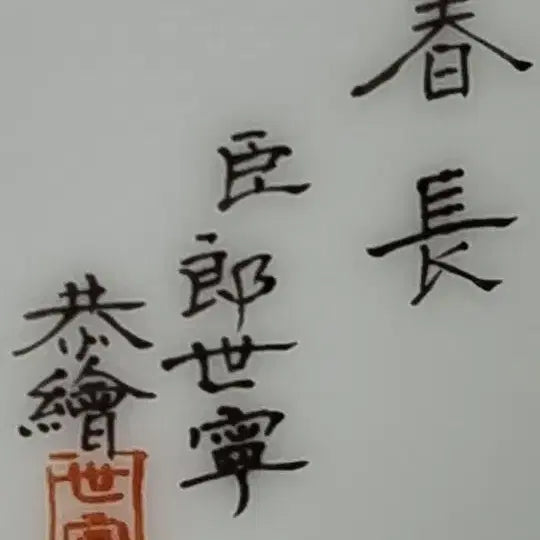 春長
臣郎世寧
恭繪
世寧